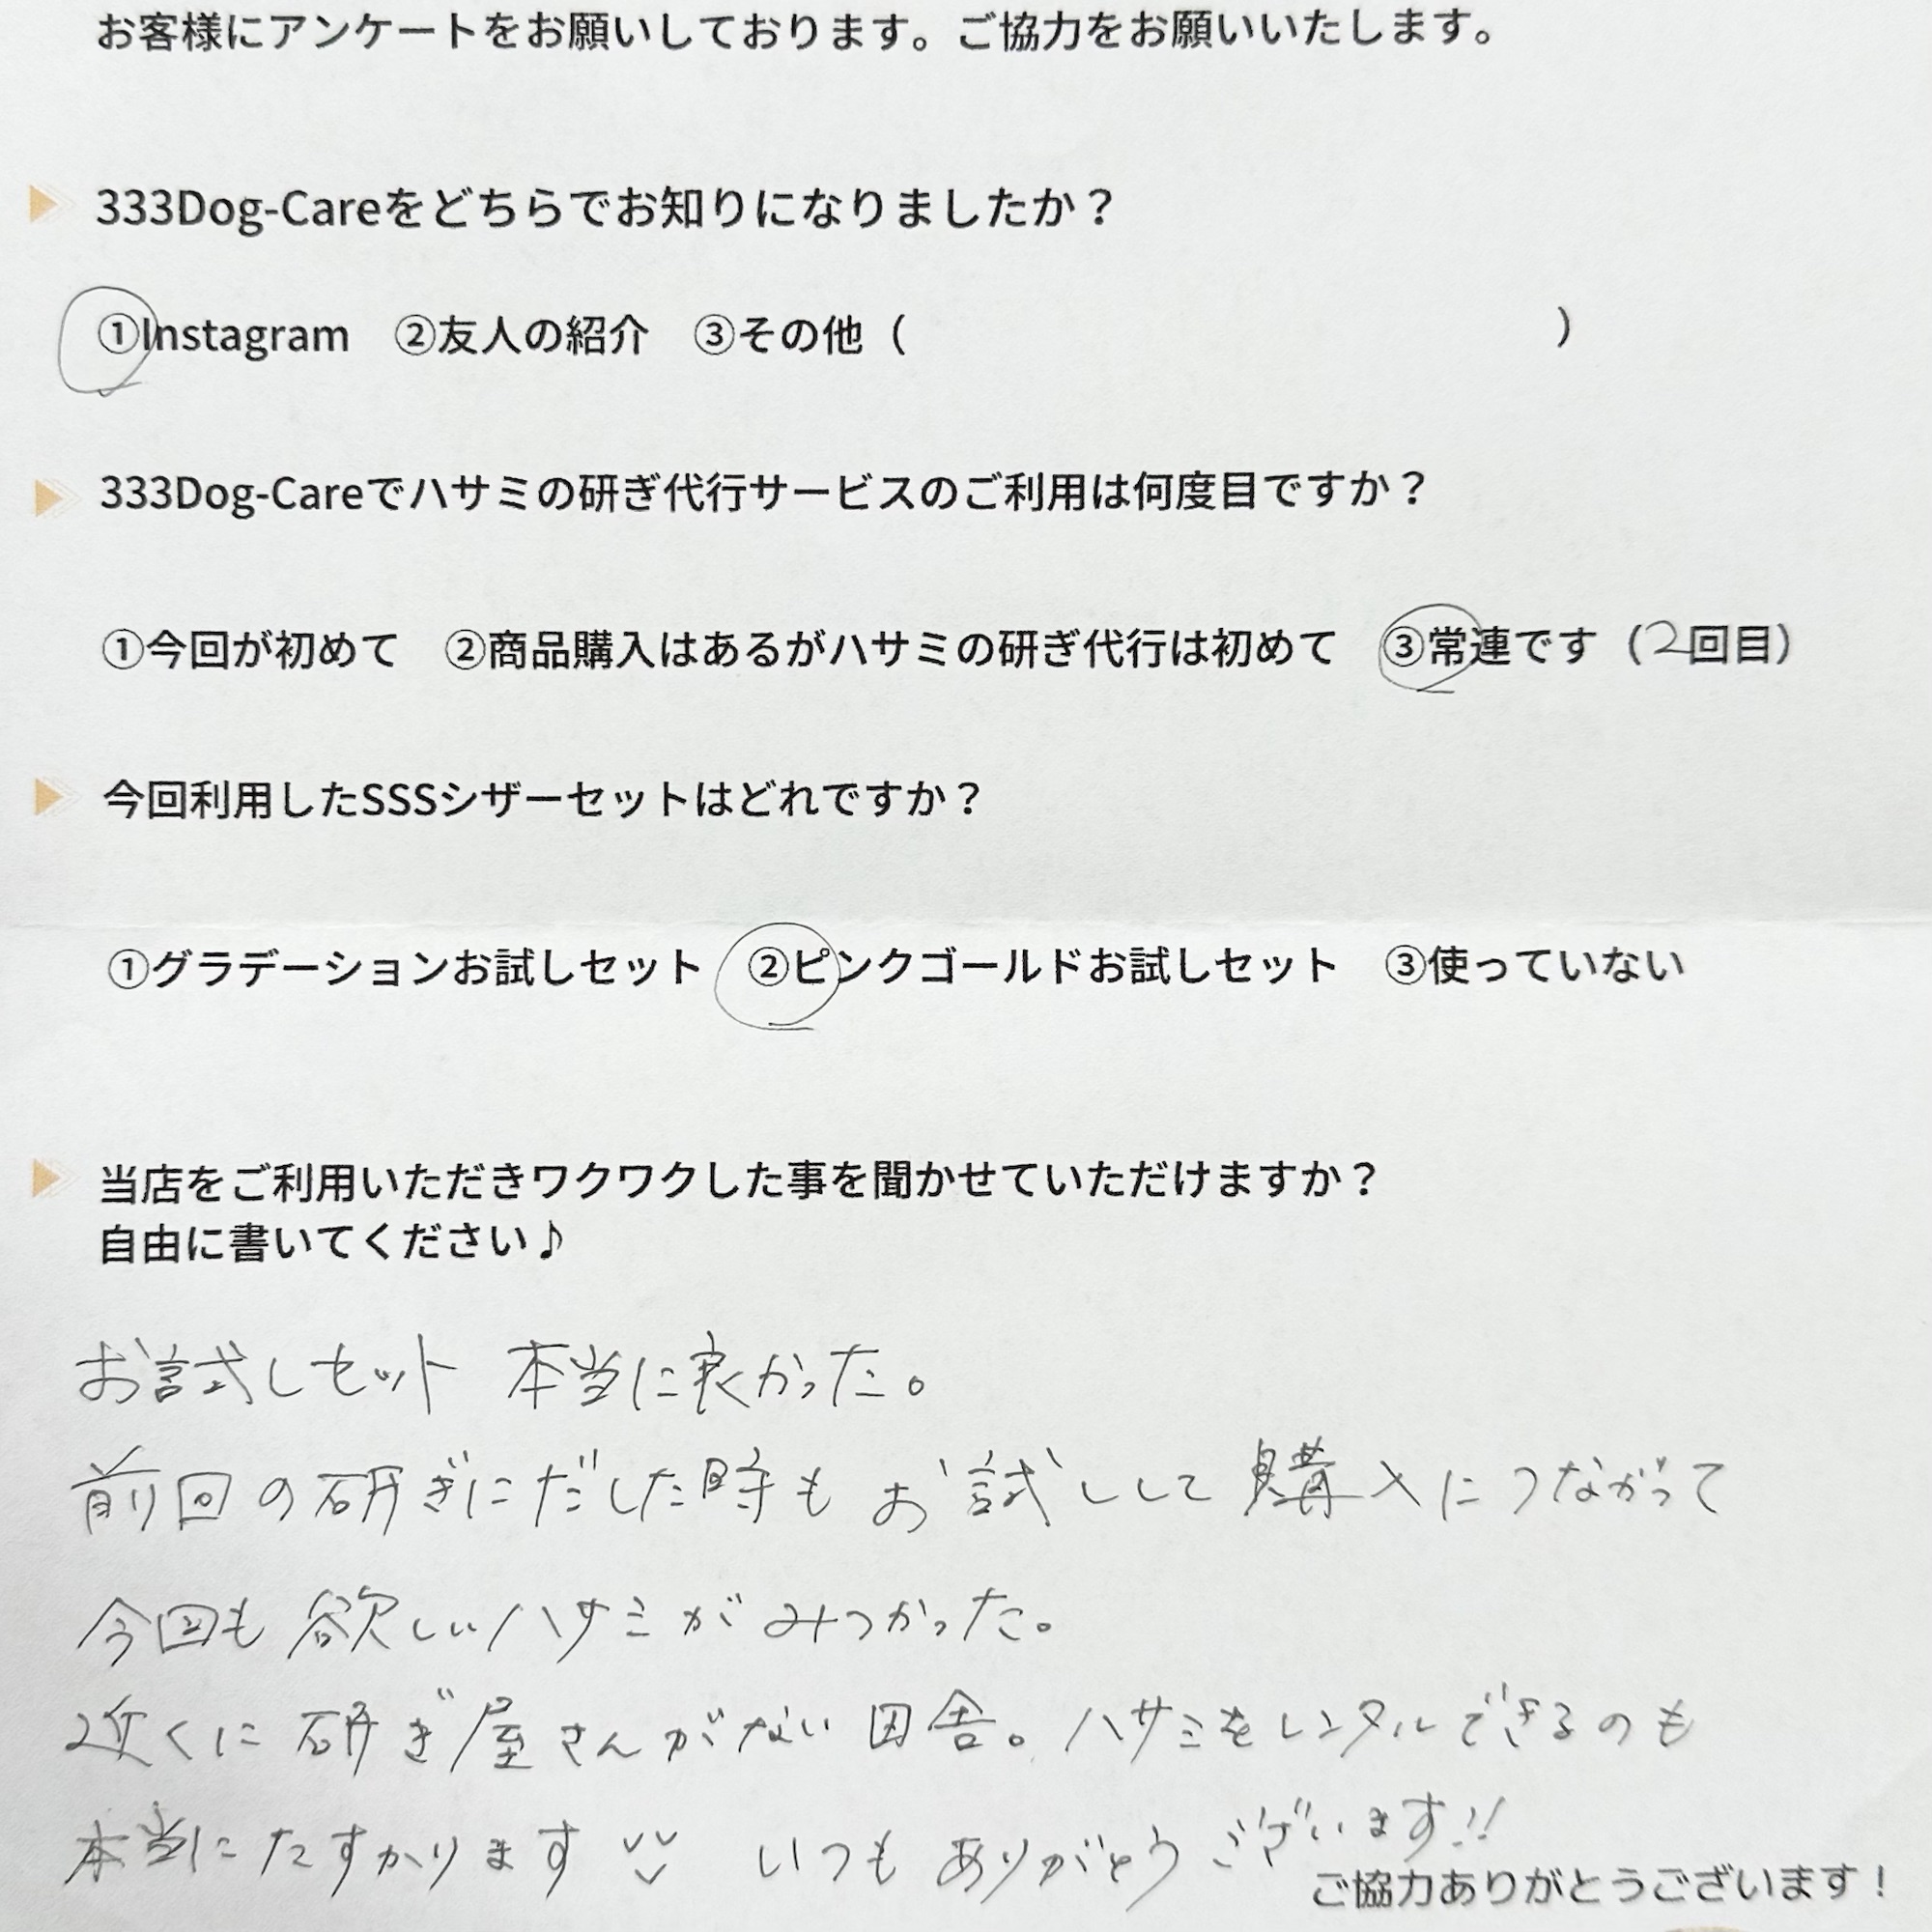 お客様にアンケートをお願いしております。ご協力をお願いいたします。
333Dog-Careをどちらでお知りになりましたか？
①Instagram　②友人の紹介　③その他（　　　　　）
333Dog-Careでハサミの研ぎ代行サービスのご利用は何度目ですか？
①今回が初めて　②商品購入はあるがハサミの研ぎ代行は初めて　③常連です（2回目）
今回利用したSSSシザーセットはどれですか？
①グラデーションお試しセット　②ピンクゴールドお試しセット　③使っていない
当店をご利用いただきワクワクした事を聞かせていただけますか？
自由に書いてください♪
お試しセット 本当に良かった。
前回の研ぎにだした時も お試しして購入につながって
今回も欲しいハサミがみつかった。
近くに研ぎ屋さんがない田舎。ハサミをレンタルできるのも
本当にたすかります いつもありがとうございます!!
ご協力ありがとうございます！